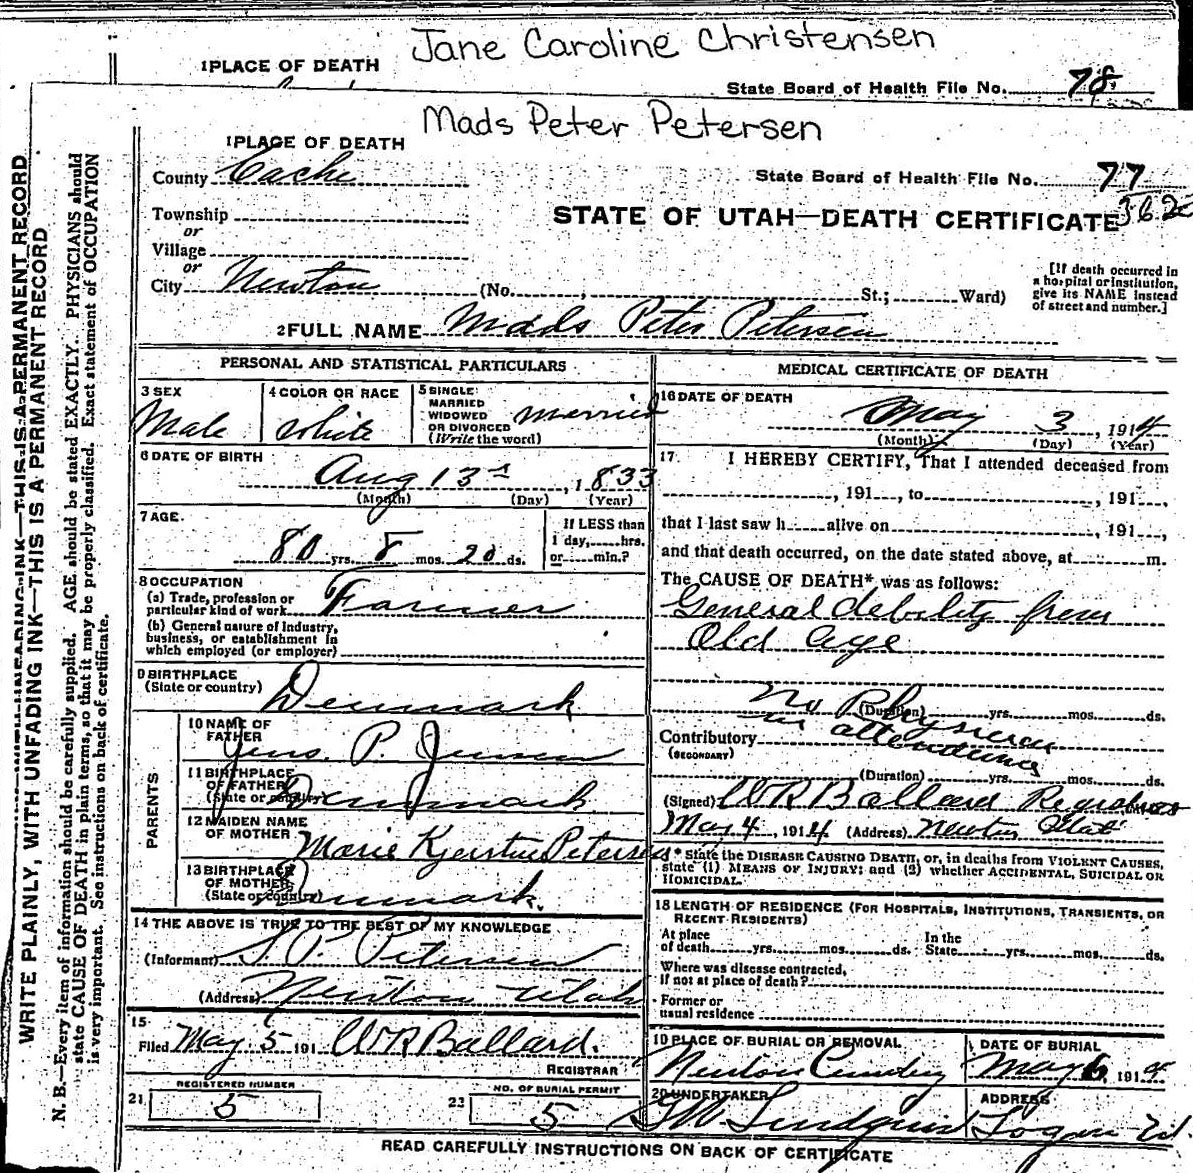 Jane Caroline Christensen
1 PLACE OF DEATH
State Board of Health File No. 78
Mads Peter Petersen
1 PLACE OF DEATH
County Cache
State Board of Health File No. 77
Township
or
STATE OF UTAH—DEATH CERTIFICATE 362
Village
or
City Newton (No. , St.; Ward)
[If death occurred in
a hospital or institution,
give its NAME instead
of street and number.]
2 FULL NAME Mads Peter Petersen
PERSONAL AND STATISTICAL PARTICULARS
3 SEX
Male
4 COLOR OR RACE
White
5 SINGLE,
MARRIED
WIDOWED
OR DIVORCED
(Write the word)
married
6 DATE OF BIRTH
Aug 13 , 1833
(Month) (Day) (Year)
7 AGE
80 yrs. 8 mos. 20 ds.
If LESS than
1 day, hrs.
or min.?
8 OCCUPATION
(a) Trade, profession or
particular kind of work Farmer
(b) General nature of Industry,
business, or establishment in
which employed (or employer)
9 BIRTHPLACE
(State or country) Denmark
PARENTS
10 NAME OF
FATHER Jens. P. Jensen
11 BIRTHPLACE
OF FATHER
(State or country) Denmark
12 MAIDEN NAME
OF MOTHER Marie Kjerstine Petersen
13 BIRTHPLACE
OF MOTHER
(State or country) Denmark.
14 THE ABOVE IS TRUE TO THE BEST OF MY KNOWLEDGE
(Informant) P. Petersen
(Address) Newton Utah
15
Filed May 5 191 W R Ballard.
REGISTRAR
REGISTERED NUMBER
21 5
NO. OF BURIAL PERMIT
23 5
MEDICAL CERTIFICATE OF DEATH
16 DATE OF DEATH
May 3, 1914
(Month) (Day) (Year)
17 I HEREBY CERTIFY, That I attended deceased from
, 191 , to , 191 ,
that I last saw h alive on , 191 ,
and that death occurred, on the date stated above, at m.
The CAUSE OF DEATH* was as follows:
General debility from
Old Age
No Physician
(Duration) yrs. mos. ds.
in attendence
Contributory
(SECONDARY)
(Duration) yrs. mos. ds.
(Signed) W R Ballard Registrar
May 4, 1914 (Address) Newton Utah
* State the DISEASE CAUSING DEATH, or, in deaths from VIOLENT CAUSES,
state (1) MEANS OF INJURY; and (2) whether ACCIDENTAL, SUICIDAL OR
HOMICIDAL.
18 LENGTH OF RESIDENCE (FOR HOSPITALS, INSTITUTIONS, TRANSIENTS, OR
RECENT RESIDENTS)
At place
of death yrs. mos. ds.
In the
State yrs. mos. ds.
Where was disease contracted,
if not at place of death?
Former or
usual residence
19 PLACE OF BURIAL OR REMOVAL
Newton Cemetery
DATE OF BURIAL
May 6, 1914
20 UNDERTAKER
Lundquist
ADDRESS
Logan Ut.
READ CAREFULLY INSTRUCTIONS ON BACK OF CERTIFICATE
WRITE PLAINLY, WITH UNFADING INK—THIS IS A PERMANENT RECORD
WRITE PLAINLY, WITH UNFADING INK—THIS IS A PERMANENT RECORD
N. B.—Every item of information should be carefully supplied. AGE should be stated EXACTLY. PHYSICIANS should
state CAUSE OF DEATH in plain terms, so that it may be properly classified. Exact statement of OCCUPATION
is very important. See instructions on back of certificate.